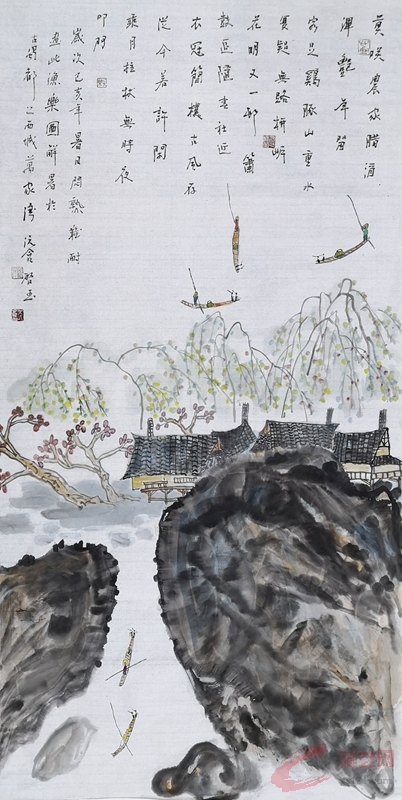 莫咲農家臘酒
渾豐年留
客足鷄豚山重水
復疑無路柳暗
花明又一邨簫
鼓追隨春社近
衣冠簡樸古風存
從今若許閒
乘月拄杖無時夜
叩門
歲次己亥年暑日悶熱難耐
畫此漁樂圖解暑於
古蜀郡之西城萬家灣